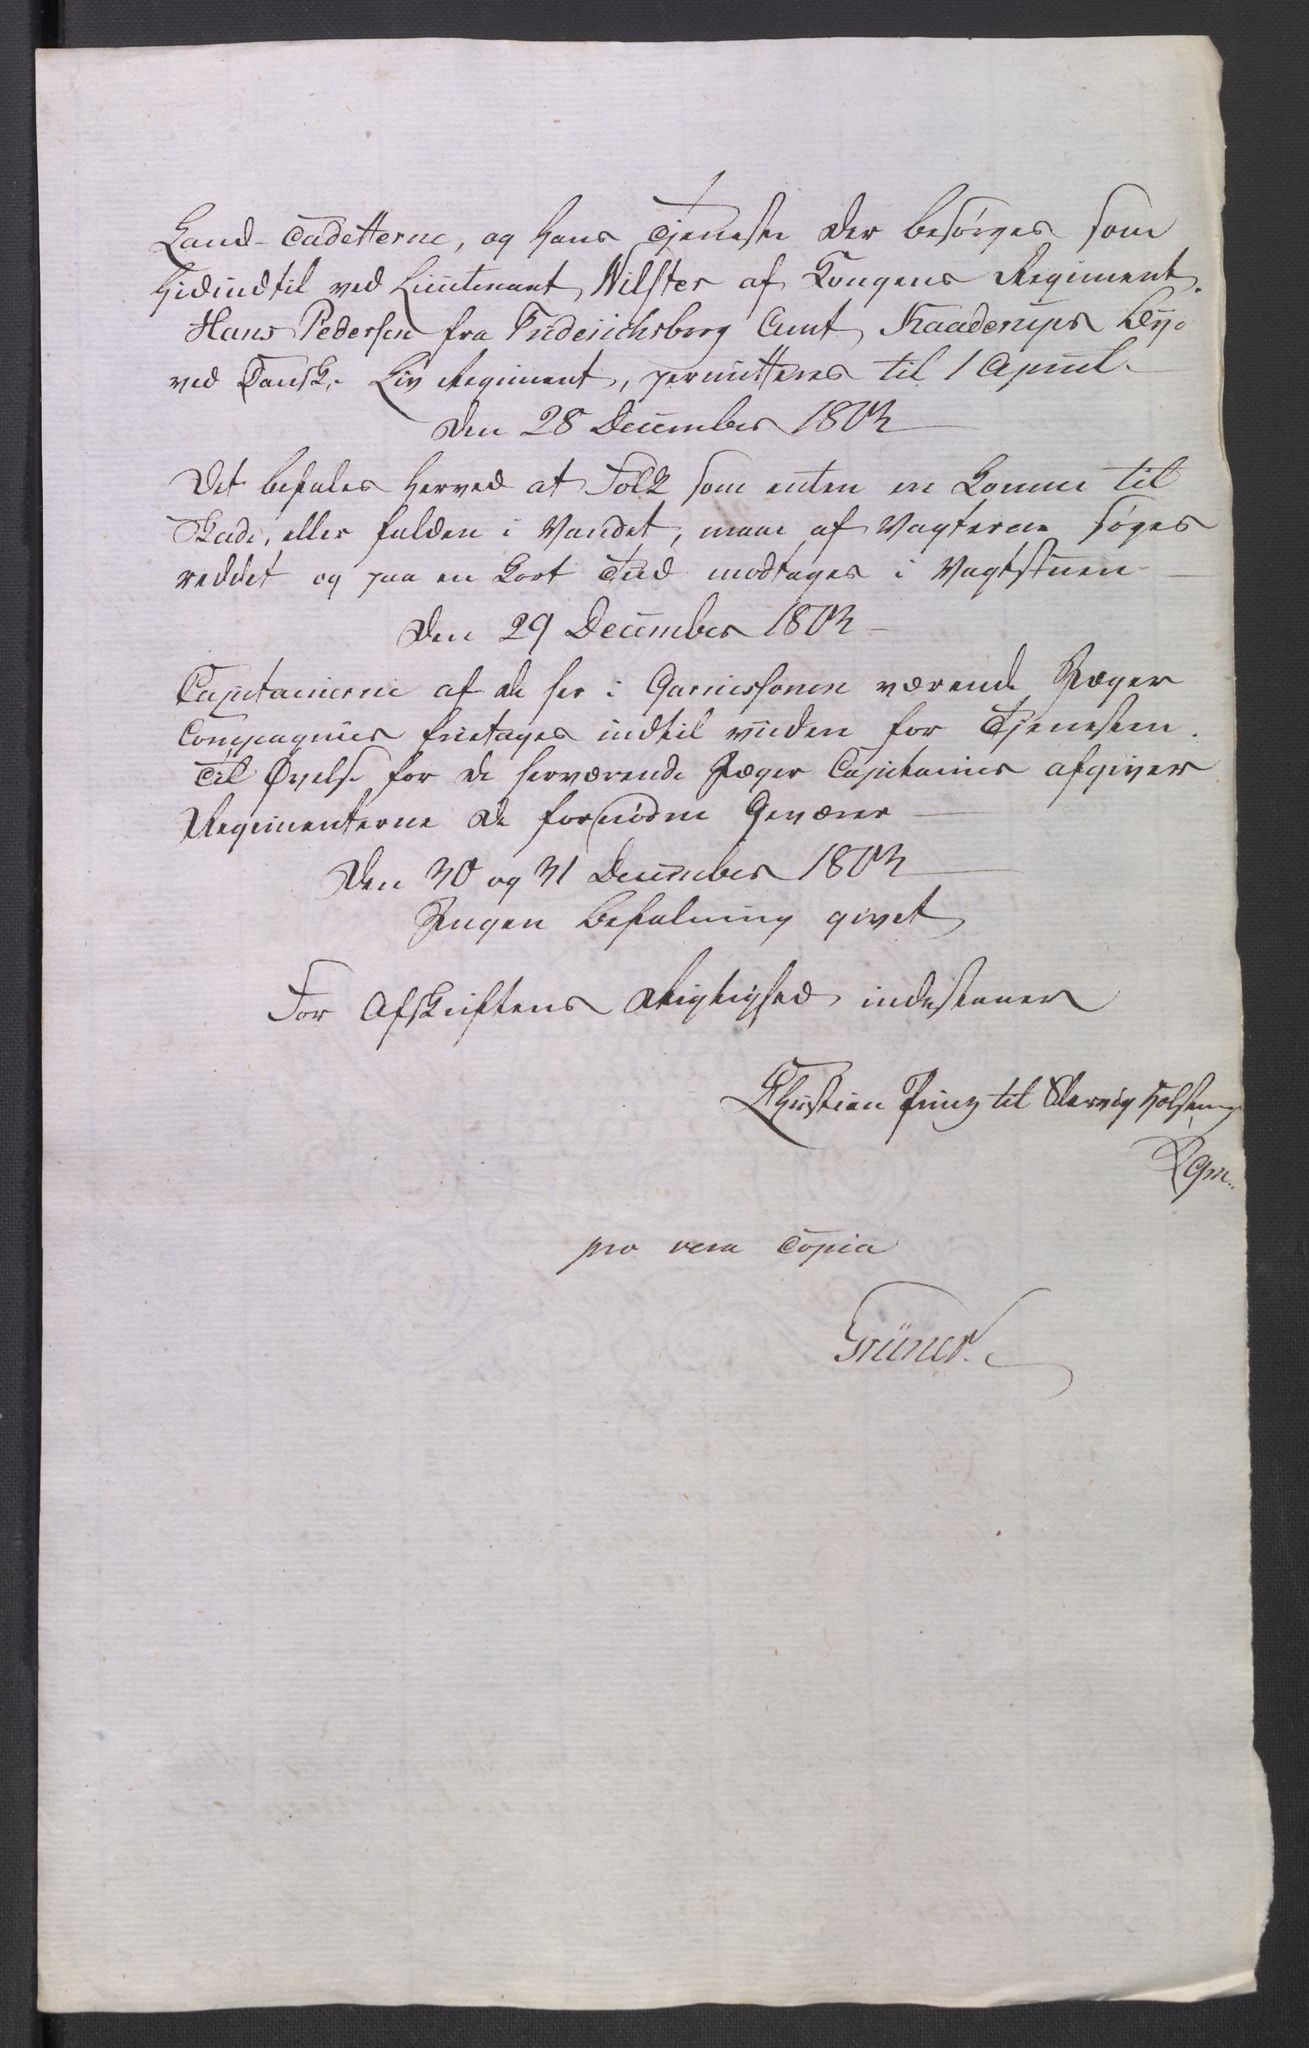 Land-Cadetterne, og hans Tjeneste der besörges som
hidindtil ved Lieutenant Nilster af Kongens Regiment.
Hans Pedersen fra Friderichsborg Amt, Kaaderups Bye
ved Dansk. Liv Regiment, permitteres til 1 April.
Den 28 December 1803
Det befales herved at Folk som enten er komne til
Skade, eller falden i Vandet, maae af Vagterne söges
reddet og paa en kort Tiid modtages i Vagtstuen
Den 29 December 1803
Capitainerne af de her i Garnisonen værende Jæger
Compagnier frietages indtil viiden for Tjenesten.
Til Øvelse for de herværende Jæger Capitainer afgiver
Regimenterne de fornödne Geværer
Den 30 og 31 December 1803
Ingen Befalning givet
For Afskriftens Rigtighed indestaaer
Christian Prinz til Slesvig Holsteen
pro vera Copia
Grüner.